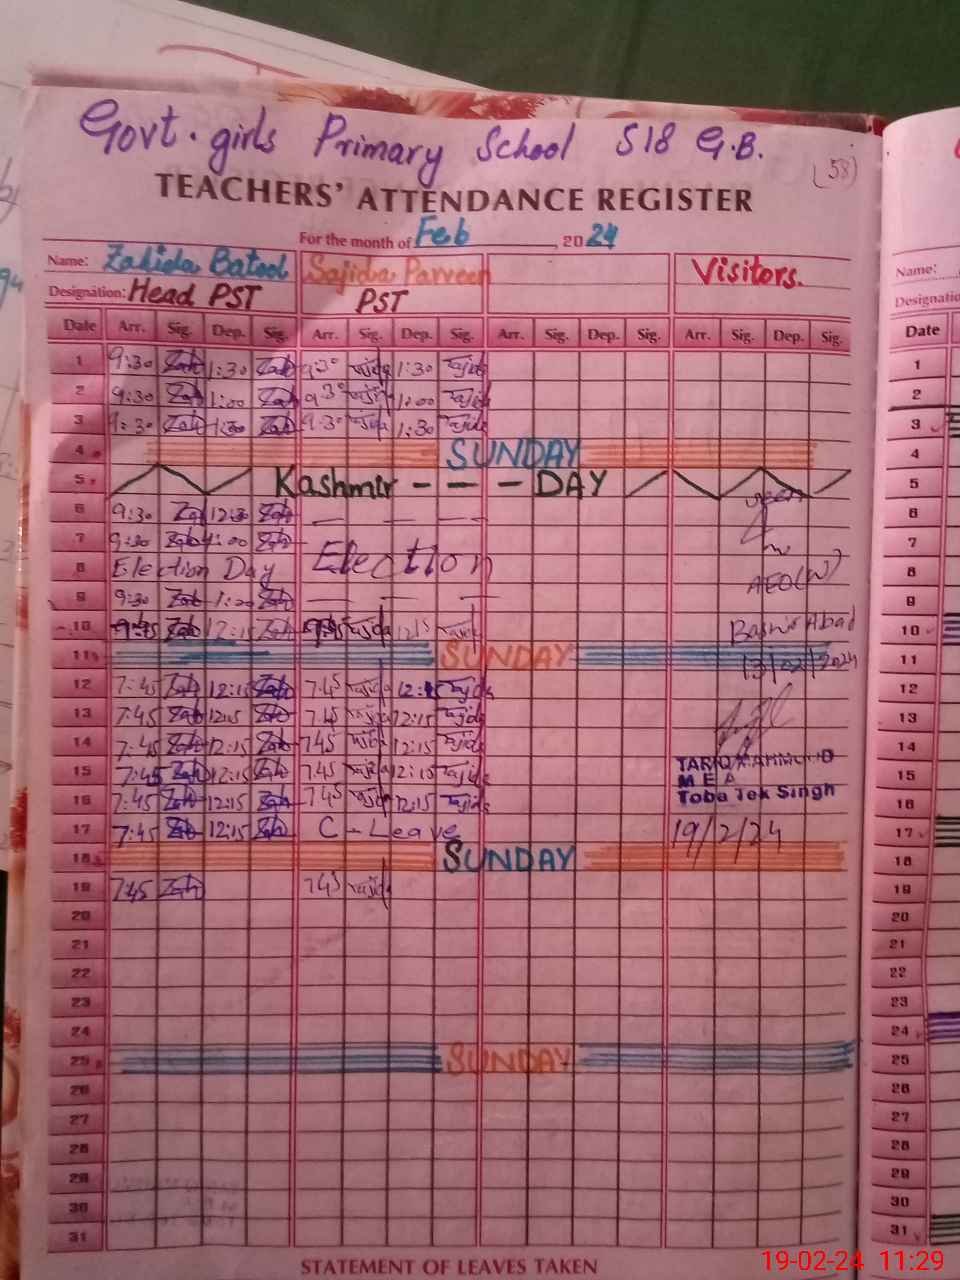 Govt. girls Primary School 518 G.B.
(58)
TEACHERS' ATTENDANCE REGISTER
For the month of Feb, 2024
Name: Zahida Batool Sajida Parveen Visitors.
Designation: Head PST PST
Date Arr. Sig. Dep. Sig. Arr. Sig. Dep. Sig. Arr. Sig. Dep. Sig. Arr. Sig. Dep. Sig.
1 9:30 Zah 1:30 Zah 9:30 1:30
2 9:30 Zah 1:00 Zah 9:30 1:00
3 9:30 Zah 1:30 Zah 9:30 1:30
4 SUNDAY
5 Kashmir - - - DAY
6 9:30 Zah 12:30 Zah — — — seen
7 9:30 Zah 1:00 Zah Election
8 Election Day AEO(W)
9 9:30 Zah 1:00 Zah — — —
10 9:45 Zah 12:15 Zah 9:45 12:15
11 SUNDAY 13/02/2024
12 7:45 Zah 12:15 Zah 7:45 12:15
13 7:45 Zah 12:15 Zah 7:45 12:15
14 7:45 Zah 12:15 Zah 7:45 12:15
15 7:45 Zah 12:15 Zah 7:45 12:15 TARIQ MAHMOOD
M E A
16 7:45 Zah 12:15 Zah 7:45 12:15 Toba Tek Singh
17 7:45 Zah 12:15 Zah C - Leave 19/2/24
18 SUNDAY
19 7:45 Zah 7:45
20
21
22
23
24
25 SUNDAY
26
27
28
29
30
31
STATEMENT OF LEAVES TAKEN
Name:
Designatio
Date
1
2
3
4
5
6
7
8
9
10
11
12
13
14
15
16
17
18
19
20
21
22
23
24
25
26
27
28
29
30
31
19-02-24 11:29